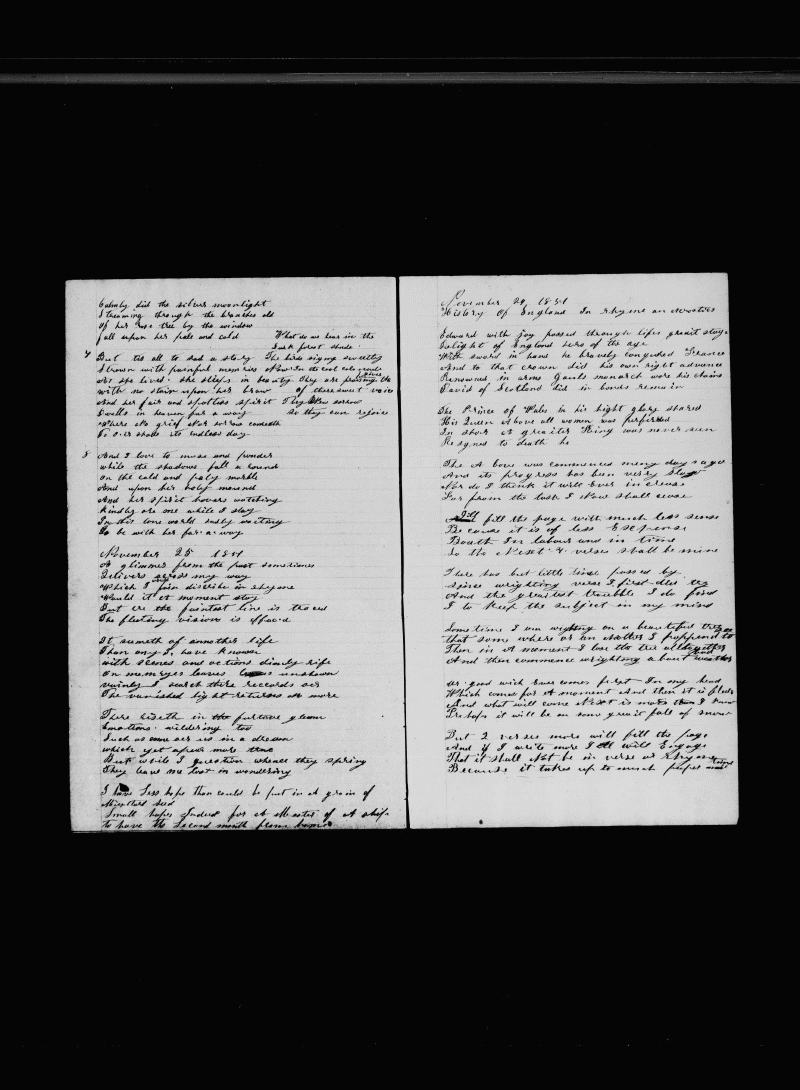 Calmly did the silver moonlight
Streaming through the branches old
Of her rose tree by the window
fall upon her pale and cold
What do we hear in the
Dark forest shade
7 But tis all to sad a story
The birds siging sweetly
Strown with painful memries
Now In the cool
Yet she lived. she sleeps in beauty
They are praising the
with no stain upon her brow
of there sweet voice
And her fair and spotless spirit
They Know sorrow
Dwells in heaven far a way
so they can rejoice
Where No grief Nor sorrow cometh
To over shade its endless day
8 And I love to muse and ponder
while the shadows fall a round
On the cold and paly marble
And upon her holy mound
And her spirit hovers watching
kindly ore me while I stay
In this lone world sadly waiting
To be with her far a way
November 25 1851
A glimmer from the past sometimes
Delivers across my way
Which I fain would discribe in rhyme
Would it A moment stay
But ere the faintest line is traced
The fleeting vision is effac-d
It seemeth of annother life
Than any I, have known
with scenes and actions dimly rife
On memryes leaves unshown
vainly I search there reccords oer
The vanished light returns no more
There hideth in the furtive gleam
Emotions wildering too
Such as come oer us in a dream
which yet apear more true
But while I question whence they spring
They leave me lost in wondering
I have Less hope than could be put in A grain of
Mustard seed
Small hopes Indeed for A Master of A ship
to have the Second month from home
November 29, 1851
History Of England In rhyme an Acrostics
Edward with joy passed through lifes great stage
Delight of England hero of the age
With sword in hand he bravely conquded France
And to that crown did his own right advance
Renowned in arms Gauls monarch wore his chains
David of Scotland did in bonds remain
The Prince of Wales in his hight glory stared
His Queen above all women was prefered
In short A greater King was never seen
Resigned to death he
The A bove was commenced meny days ago
And its progress has been verry slow
Nor do I think it will Ever increase
For from the task I Now shall cease
I'll fill the page with much less sense
Because it is of less Expense
Bouth In labour and in time
So the Next 4 verses shall be mine
There has but little time passed by
since wrighting verse I first did try
And the greatest troubble I do find
I to Keep the subject in my mind
Sometime I am wrighting on a beautiful tree
that some where or an Nother I happend to see
Then in A moment I lose the tree alltogether
And then commence wrighting about weather
As good wich Ever comes first In my head
Which comes for A moment And then it is fled
And what will come Next is more than I know
Perhaps it will be on some great fall of snow
But 2 verses more will fill the page
And if I write more I will Engage
That it shall Not be in verse or Rhyme
Because it takes up to much paper and time